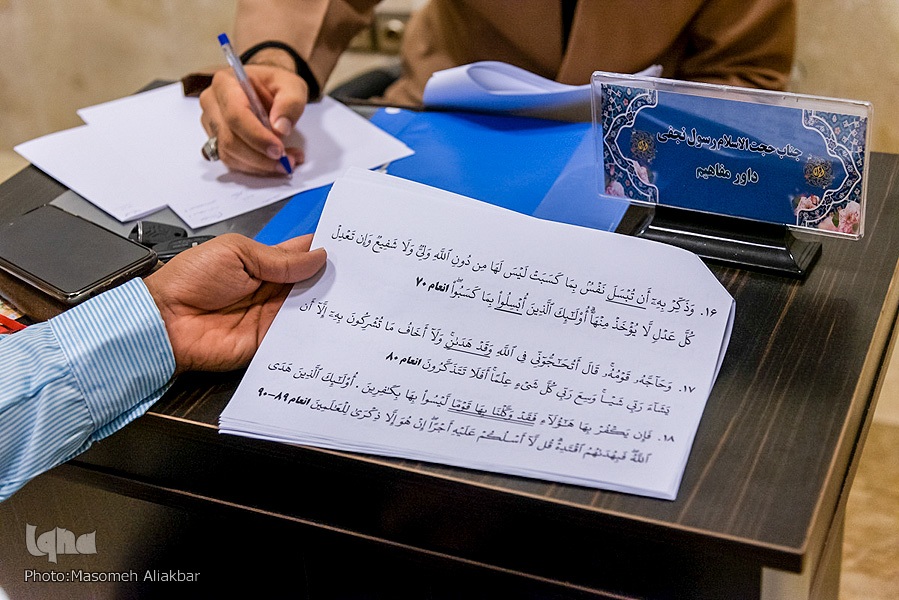 جناب حجت الاسلام رسول نجفی
داور مفاهیم
۱۶. وَذَكِّرْ بِهِۦٓ أَن تُبْسَلَ نَفْسٌۢ بِمَا كَسَبَتْ لَيْسَ لَهَا مِن دُونِ ٱللَّهِ وَلِيٌّ وَلَا شَفِيعٌ وَإِن تَعْدِلْ
كُلَّ عَدْلٍ لَّا يُؤْخَذْ مِنْهَآ أُو۟لَـٰٓئِكَ ٱلَّذِينَ أُبْسِلُوا۟ بِمَا كَسَبُوا۟ انعام ۷۰
۱۷. وَحَآجَّهُۥ قَوْمُهُۥ قَالَ أَتُحَـٰٓجُّوٓنِّي فِي ٱللَّهِ وَقَدْ هَدَىٰنِ وَلَآ أَخَافُ مَا تُشْرِكُونَ بِهِۦٓ إِلَّآ أَن
يَشَآءَ رَبِّي شَيْـًٔا وَسِعَ رَبِّي كُلَّ شَيْءٍ عِلْمًا أَفَلَا تَتَذَكَّرُونَ انعام ۸۰
۱۸. فَإِن يَكْفُرْ بِهَا هَـٰٓؤُلَآءِ فَقَدْ وَكَّلْنَا بِهَا قَوْمًا لَّيْسُوا۟ بِهَا بِكَـٰفِرِينَ . أُو۟لَـٰٓئِكَ ٱلَّذِينَ هَدَى
ٱللَّهُ فَبِهُدَىٰهُمُ ٱقْتَدِهْ قُل لَّآ أَسْـَٔلُكُمْ عَلَيْهِ أَجْرًا إِنْ هُوَ إِلَّا ذِكْرَىٰ لِلْعَـٰلَمِينَ انعام ۸۹-۹۰
iqna
Photo:Masomeh Aliakbar